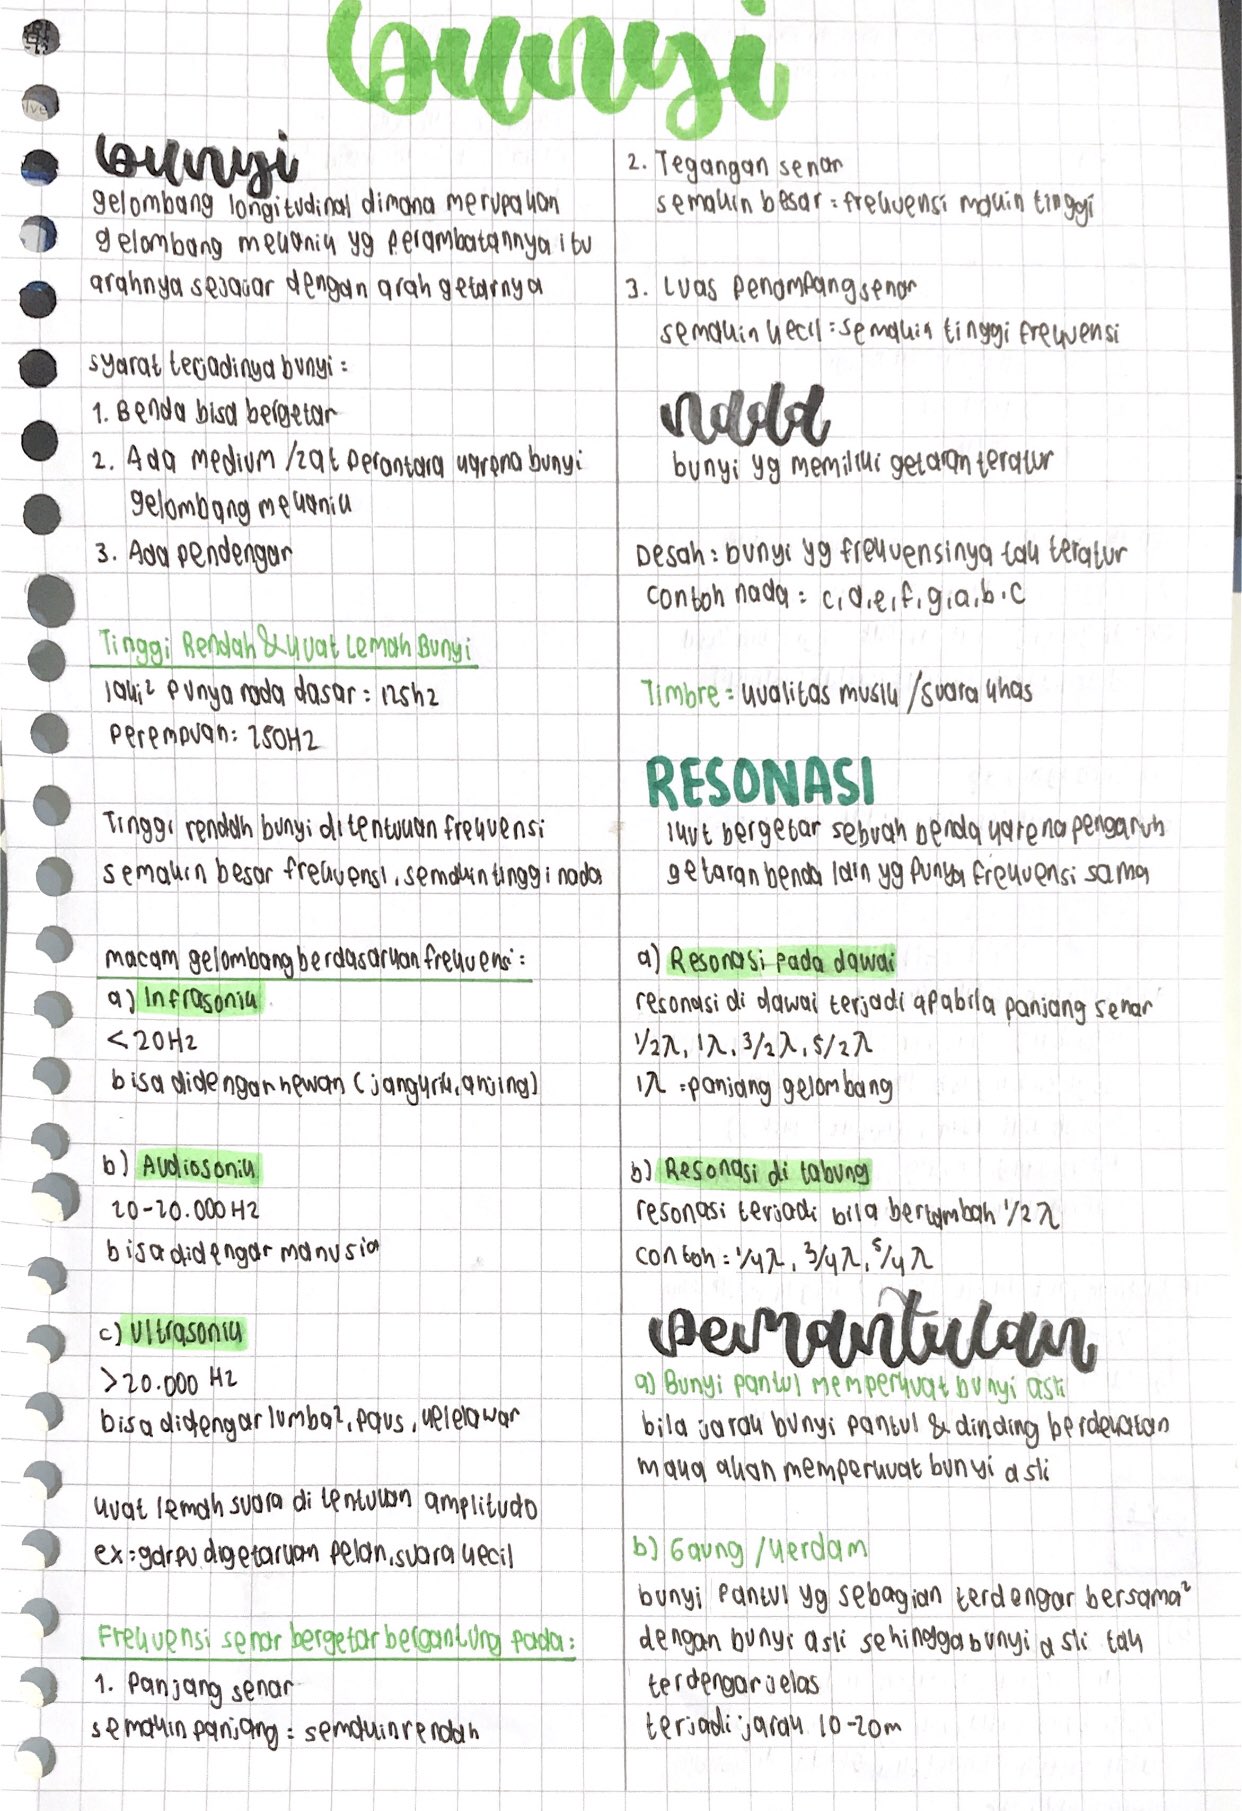 bunyi
bunyi
gelombang longitudinal dimana merupakan
gelombang mekanik yg perambatannya itu
arahnya sejajar dengan arah getarnya
syarat terjadinya bunyi :
1. Benda bisa bergetar
2. Ada medium /zat perantara karena bunyi
gelombang mekanik
3. Ada pendengar
Tinggi Rendah & Kuat Lemah Bunyi
laki² punya nada dasar : 125hz
perempuan : 250Hz
Tinggi rendah bunyi ditentukan frekuensi
semakin besar frekuensi, semakin tinggi nada
macam gelombang berdasarkan frekuensi :
a) Infrasonik
< 20Hz
bisa didengar hewan (jangkrik, anjing)
b) Audiosonik
20-20.000Hz
bisa didengar manusia
c) Ultrasonik
>20.000 Hz
bisa didengar lumba², paus, kelelawar
kuat lemah suara ditentukan amplitudo
ex : garpu digetarkan pelan, suara kecil
Frekuensi senar bergetar bergantung pada :
1. Panjang senar
semakin panjang = semakin rendah
2. Tegangan senar
semakin besar = frekuensi makin tinggi
3. Luas penampang senar
semakin kecil = semakin tinggi frekuensi
nada
bunyi yg memiliki getaran teratur
Desah : bunyi yg frekuensinya tak teratur
contoh nada = c, d, e, f, g, a, b, c
Timbre = kualitas musik / suara khas
RESONASI
ikut bergetar sebuah benda karena pengaruh
getaran benda lain yg punya frekuensi sama
a) Resonasi pada dawai
resonasi di dawai terjadi apabila panjang senar
1/2λ, 1λ, 3/2λ, 5/2λ
1λ = panjang gelombang
b) Resonasi di tabung
resonasi terjadi bila bertambah 1/2 λ
contoh = 1/4λ, 3/4λ, 5/4λ
Pemantulan
a) Bunyi pantul memperkuat bunyi asli
bila jarak bunyi pantul & dinding berdekatan
maka akan memperkuat bunyi asli
b) Gaung / Kerdam
bunyi pantul yg sebagian terdengar bersama²
dengan bunyi asli sehingga bunyi asli tak
terdengar jelas
terjadi jarak 10-20m